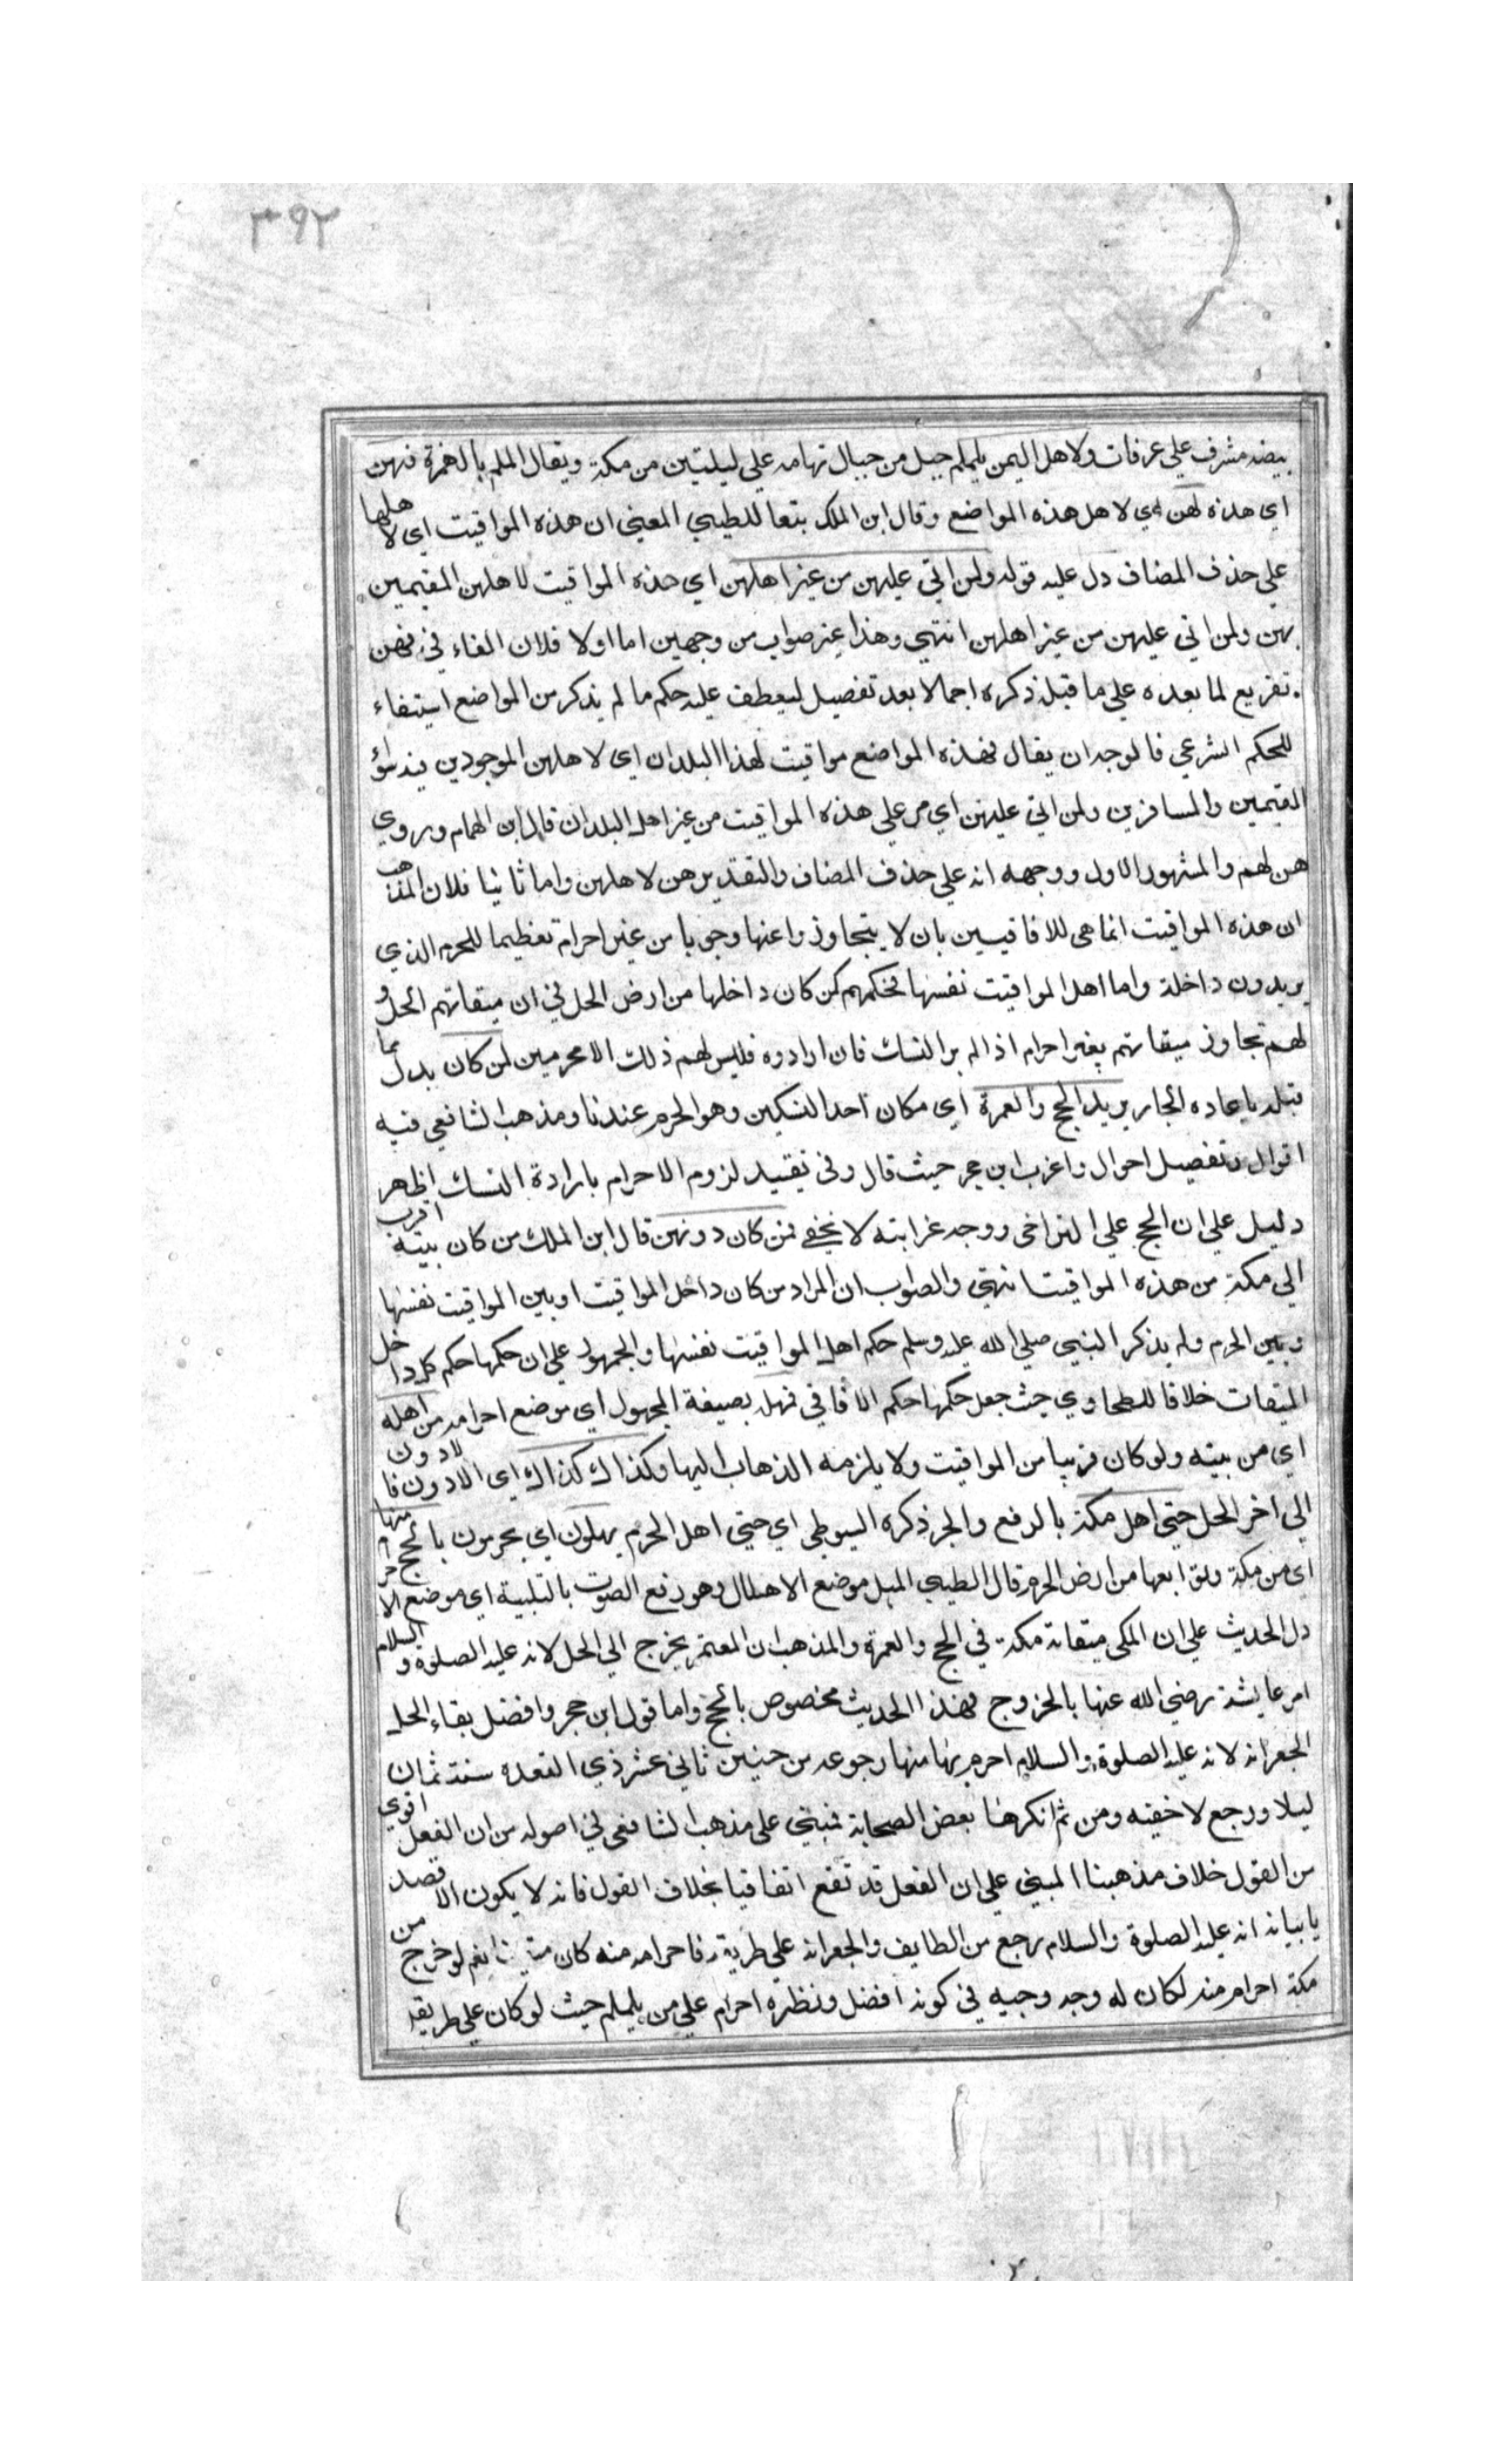 ٣٩٢
بيضه مشرف علي عرفات ولاهل اليمن يلملم جبل من جبال تهامه علي ليلتين من مكة ويقال الملم بالهمزة فهن
اي هذه لهن اي لاهل هذه المواضع وقال ابن الملك تبعا للطيبي المعني ان هذه المواقيت اي لاهلها
علي حذف المضاف دل عليه قوله ولمن اتي عليهن من غير اهلهن اي هذه المواقيت لاهلهن المقيمين
بهن ولمن اتي عليهن من غير اهلهن انتهي وهذا غير صواب من وجهين اما اولا فلان الفاء في فهن
تفريع لما بعده علي ما قبله ذكره اجمالا بعد تفصيل ليعطف عليه حكم ما لم يذكر من المواضع استيفاء
للحكم الشرعي فالوجه ان يقال فهذه المواضع مواقيت لهذا البلدان اي لاهلهن الموجودين فيه سوٗ
المقيمين والمسافرين ولمن اتي عليهن اي مر علي هذه المواقيت من غير اهل البلدان قال ابن الهمام وروي
هن لهم والمشهور الاول ووجهه انه علي حذف المضاف والتقدير هن لاهلهن واما ثانيا فلان المذهب
ان هذه المواقيت انما هي للافاقيين بان لا يتجاوزوا عنها وجوبا من غير احرام تعظيما للحرم الذي
يريدون داخلة واما اهل المواقيت نفسها فحكمهم كمن كان داخلها من ارض الحل في ان ميقاتهم الحل و
لهم تجاوز ميقاتهم بغير احرام اذا لم ير النسك فان ارادوه فليس لهم ذلك الا محرمين لمن كان بدل مما
قبله باعاده الجار يريد الحج والعمرة اي مكان احد النسكين وهو الحرم عندنا ومذهب الشافعي فيه
اقوال وتفصيل احوال واغرب ابن حجر حيث قال وفي تقييد لزوم الاحرام بارادة النسك اظهر
دليل علي ان الحج علي التراخي ووجه غرابته لا يخفي فمن كان دونهن قال ابن الملك من كان بيته اقرب
الي مكة من هذه المواقيت انتهي والصواب ان المراد من كان داخل المواقيت او بين المواقيت نفسها
وبين الحرم ولم يذكر النبي صلي الله عليه وسلم حكم اهل المواقيت نفسها والجمهور علي ان حكمها حكم كل داخل
الميقات خلافا للطحاوي حيث جعل حكمها حكم الافاقي فمهله بصيغة المجهول اي موضع احرامه من اهله
اي من بيته ولو كان قريبا من المواقيت ولا يلزمه الذهاب اليها وكذاك كذاك اي الادون فالادون
الي اخر الحل حتي اهل مكة بالرفع والجر ذكره السيوطي اي حتي اهل الحرم يهلون اي يحرمون بالحج منها
اي من مكة وتوابعها من ارض الحرم قال الطيبي المهل موضع الاهلال وهو رفع الصوت بالتلبية اي موضع الاحرام
دل الحديث علي ان المكي ميقاته مكة في الحج والعمرة والمذهب ان المعتمر يخرج الي الحل لانه عليه الصلوة والسلام
امر عايشة رضي الله عنها بالخروج فهذا الحديث مخصوص بالحج واما قول ابن حجر وافضل بقاء الحل
الجعرانه لانه عليه الصلوة والسلام احرم بها منها رجوعه من حنين ثاني عشر ذي القعده سنة ثمان
ليلا ورجع لاخفيه ومن ثم انكرها بعض الصحابة فمبني علي مذهب الشافعي في اصوله من ان الفعل اقوي
من القول خلاف مذهبنا المبني علي ان الفعل قد تقع اتفاقيا بخلاف القول فانه لا يكون الا قصد
يا بيانه انه عليه الصلوة والسلام رجع من الطايف والجعرانه علي طريقه فاحرامه منه كان نعم لو خرج من
مكة احرام منه لكان له وجه وجيه في كونه افضل ونظره احرام علي من يلملم حيث لو كان علي طريقه